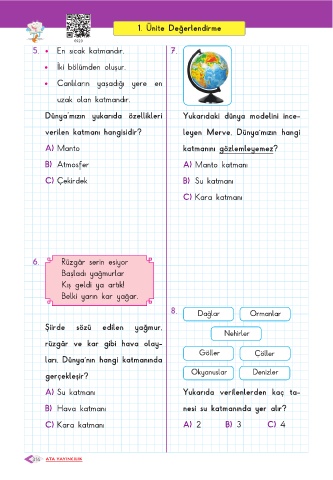 1. Ünite Değerlendirme
5. • En sıcak katmandır.
• İki bölümden oluşur.
• Canlıların yaşadığı yere en
uzak olan katmandır.
Dünya'mızın yukarıda özellikleri
verilen katmanı hangisidir?
A) Manto
B) Atmosfer
C) Çekirdek
6.
Rüzgâr serin esiyor
Başladı yağmurlar
Kış geldi ya artık!
Belki yarın kar yağar.
Şiirde sözü edilen yağmur,
rüzgâr ve kar gibi hava olay-
ları, Dünya'nın hangi katmanında
gerçekleşir?
A) Su katmanı
B) Hava katmanı
C) Kara katmanı
7.
Yukarıdaki dünya modelini ince-
leyen Merve, Dünya'mızın hangi
katmanını gözlemleyemez?
A) Manto katmanı
B) Su katmanı
C) Kara katmanı
8.
Dağlar Ormanlar
Nehirler
Göller Çöller
Okyanuslar Denizler
Yukarıda verilenlerden kaç ta-
nesi su katmanında yer alır?
A) 2 B) 3 C) 4
ATA YAYINCILIK